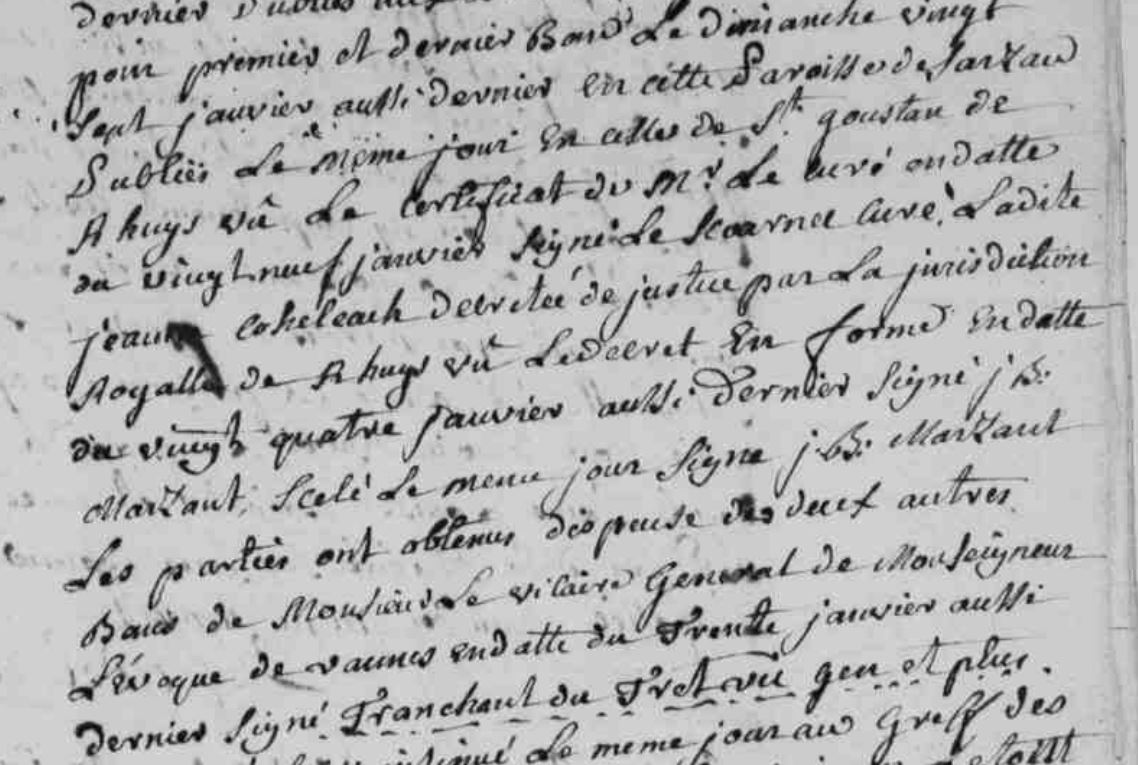 dernier Publiés
pour premier et dernier Ban Le dimanche vingt
Sept janvier aussi dernier En cette Paroisse de Sarzau
Publiés Le même jour En celle de St. goustan de
Rhuys vû Le Certificat de Mr. Le curé endatte
du vingt neuf janvier Signé Le Scoarnec Curé, Ladite
jeanne Coheleach decretée de justice par La jurisdiction
Royalle de Rhuys vû Le decret En forme Endatte
du vingt quatre janvier aussi Dernier Signé j: B:
Marzant, Scelé Le meme jour Signe j: B: Marzant
Les parties ont obtenus dispense des deux autres
Bans de Monsieur Le vicaire General de Monseigneur
L'évoque de vannes endatte du Trente janvier aussi
dernier Signé Tranchant du Tret vic gen et plus.
Le meme jour au Greff des